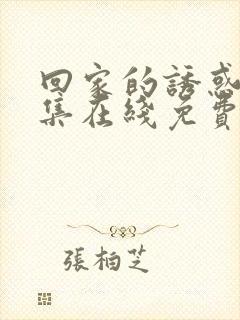 回家的誘惑
集在綫免費
張柏芝